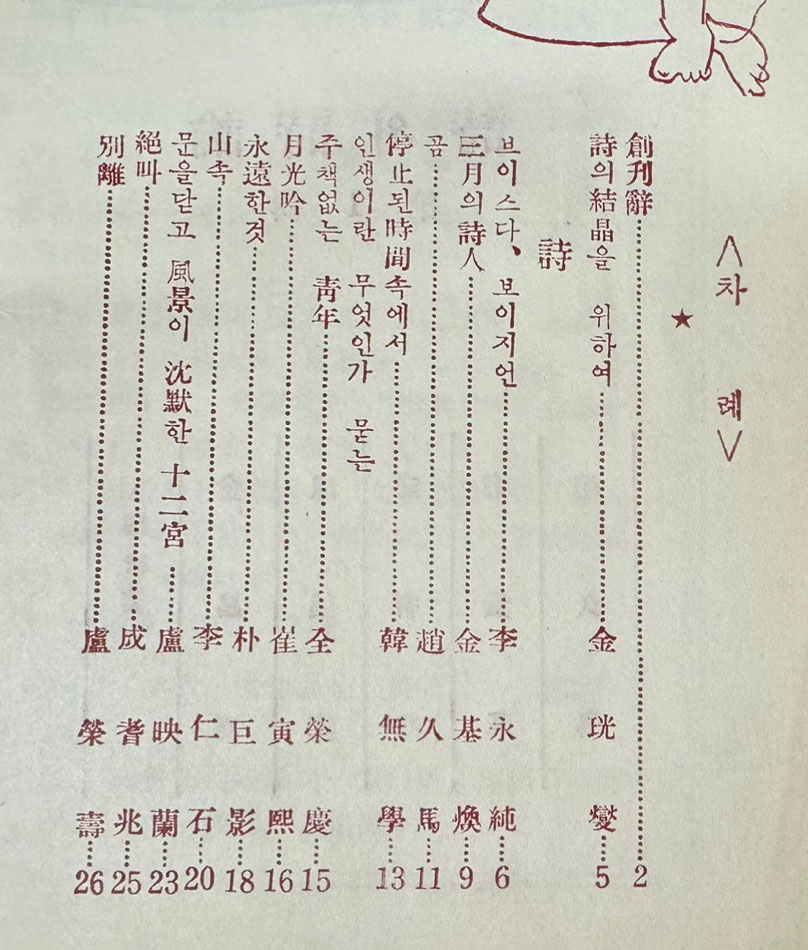 <차 례>
★
創刊辭……2
詩의結晶을 위하여……金珖燮……5
詩
브이스다、보이지언……李永純……6
三月의詩人……金基煥……9
곰……趙久馬……11
停止된時間속에서……韓無學……13
인생이란 무엇인가 묻는
주책없는 靑年……全榮慶……15
月光吟……崔寅熙……16
永遠한것……朴巨影……18
山촉……李仁石……20
문을닫고 風景이 沈默한 十二宮……盧映蘭……23
絕叫……成耆兆……25
別離……盧榮壽……26